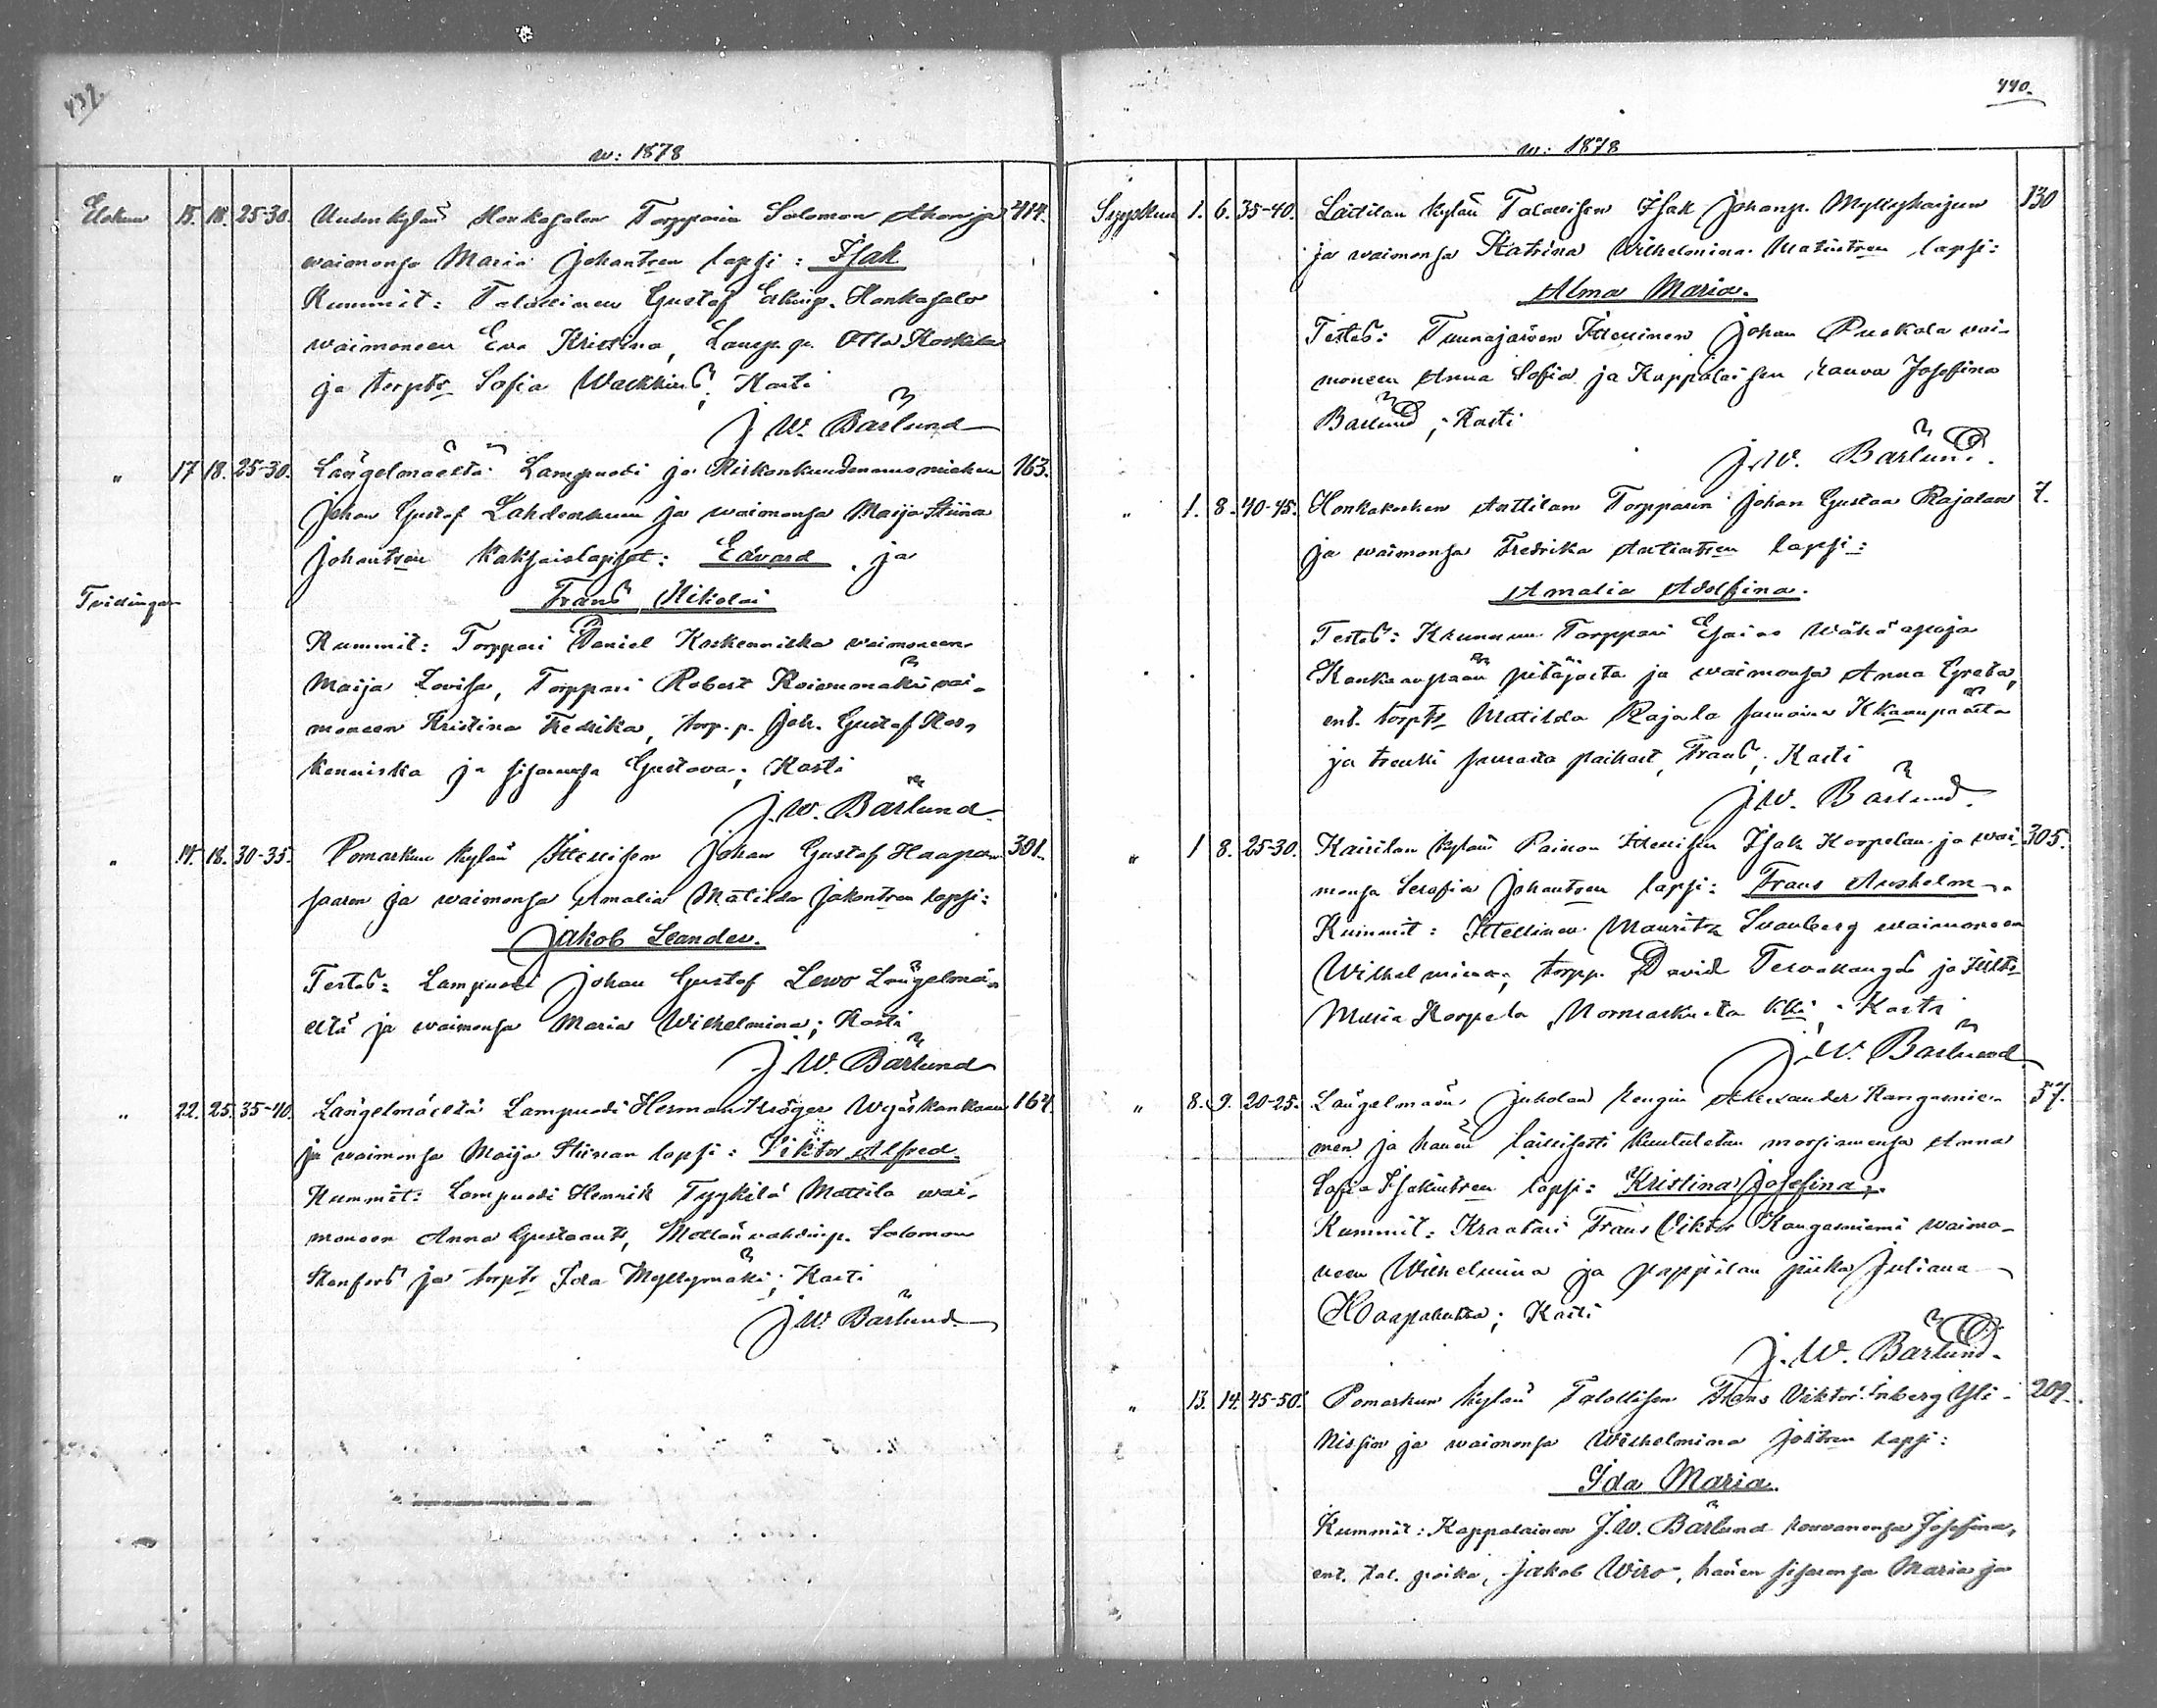 439.
w: 1878
Elokuu 15. 18. 25-30. Uudenkylän Honkasalon Torpparin Salomon Ahon ja 414.
waimonsa Maria Johantren lapsi: Isak
Kummit: Talollinen Gustaf Erkinp. Honkasalo
waimoneen Eva Kristina, Lamp. p. Otto Koskela
ja torpts Sofia Wackkius; Kasti
J. W. Bärlund
" 17 18. 25-30. Längelmäeltä Lampuodi ja Kirkonkuudennusmiehen 163.
Johan Gustaf Lahdenkuun ja waimonsa Maija Stiina
Johantren kaksaislapset: Edvard ja
Tvillingar Frans Nikolai
Kummit: Torppari Daniel Koskenniska waimoneen
Maija Lovisa, Torppari Robert Koivunmäki wai-
moneen Kristina Fredrika, torp. p. Joh. Gustaf Kos-
kenniska ja sisarensa Gustava; Kasti
J. W. Bärlund
" 14. 18. 30-35. Pomarkun kylän Itsellisen Johan Gustaf Haapa- 301.
saaren ja waimonsa Amalia Matilda Jakontren lapsi:
Jakob Leander.
Testes: Lampuodi Johan Gustaf Lewo Längelmä-
eltä ja waimonsa Maria Wilhelmina; Kasti
J. W. Bärlund
" 22. 25. 35-40. Längelmäeltä Lampuodi Herman Kröger Wyöskankaan 164.
ja waimonsa Maija Stiinan lapsi: Viktor Alfred.
Kummit: Lampuodi Henrik Tyykilä Mattila wai-
moneen Anna Gustaants, Metsänvahdinp. Salomon
Stenfors ja torpts Ida Myllymäki; Kasti
J. W. Bärlund
440.
w: 1878
Syyskuu 1. 6. 35-40. Laitilan kylän Talollisen Isak Johanp. Myllyharjun 130
ja waimonsa Katrina Wilhelmina Matintren lapsi:
Alma Maria.
Testes: Tuunajärven Itsellinen Johan Ruokala wai-
moneen Anna Sofia ja Kappalaisen rouva Josefina
Bärlund; Kasti
J. W. Bärlund.
" 1. 8. 40-45. Honkakosken Anttilan Torpparin Johan Gustaa Rajalan 7.
ja waimonsa Fredrika Antintren lapsi:
Amalia Adolfina.
Testes: Torppari Esaias Wähäapaja
Kankaanpään pitäjästä ja waimonsa Anna Greta,
ent. torpts Matilda Rajala samoin Kkaanpäästä
ja trenki samasta paikast, Frans; Kasti
J. W. Bärlund.
" 1 8. 25-30. Kairilan kylän Painon Itsellisen Isak Korpelan ja wai- 305.
monsa Serafia Johantren lapsi: Frans Anshelm
Kummit: Itsellinen Mauritz Svanberg waimoneen
Wilhelmina, torpp. David Tervakangas ja Itllts
Maria Korpela, Normarkusta kki; Kasti
J. W. Bärlund
" 8. 9. 20-25. Längelmäen Juholan Rengin Alexander Kangasnie- 57.
men ja hänen laillisesti kuulutetun morsiamensa Anna
Sofia Isakintren lapsi: Kristina Josefina.
Kummit: Kraatari Frans Viktor Kangasniemi waimo-
neen Wilhelmina ja pappilan piika Juliana
Haapakoska; Kasti
J. W. Bärlund.
" 13. 14. 45-50. Pomarkun kylän Talollisen Frans Viktor Inberg Yli- 209.
Nissin ja waimonsa Wilhelmina Johtren lapsi:
Ida Maria.
Kummit: Kappalainen J. W. Bärlund rouvanensa Josefina,
ent. tal. poika, Jakob Wiro, hänen sisarensa Maria ja